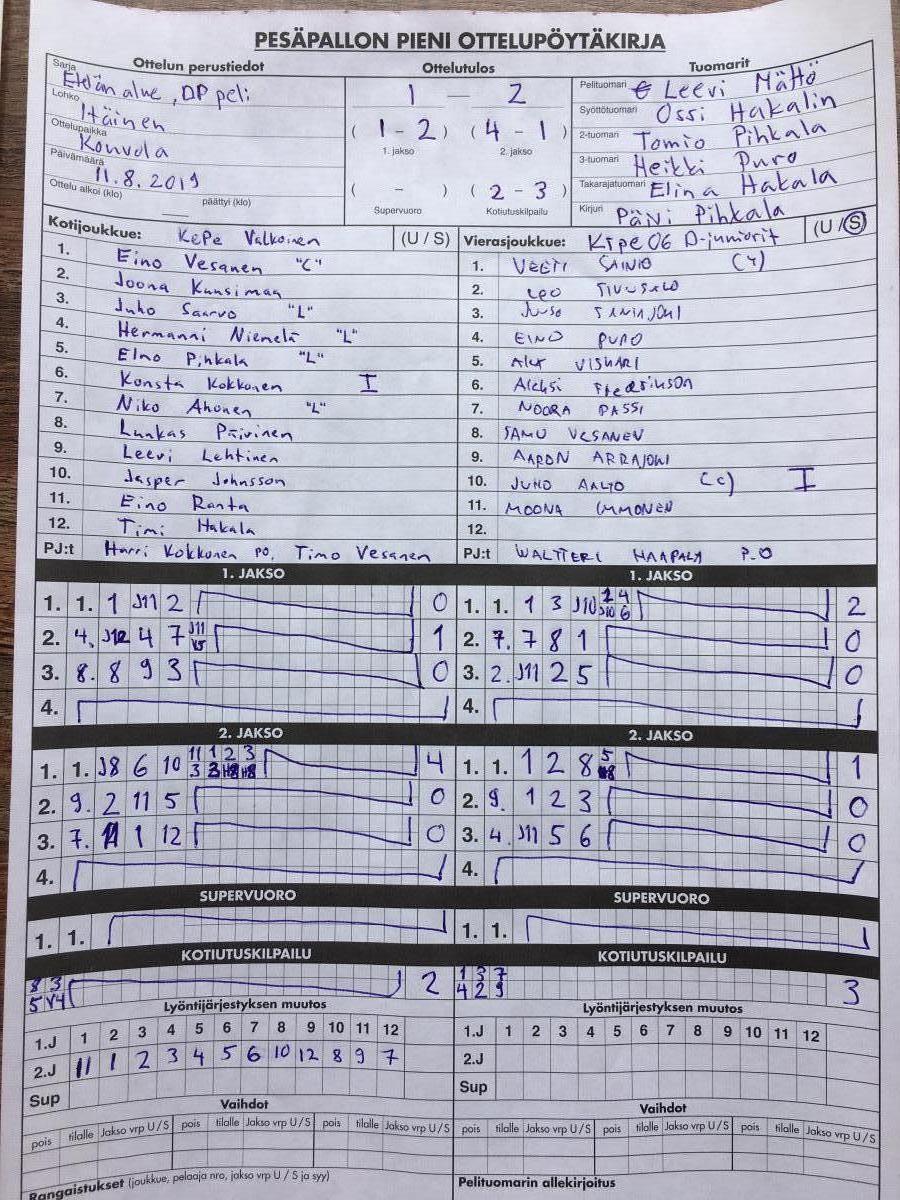 PESÄPALLON PIENI OTTELUPÖYTÄKIRJA
Ottelun perustiedot
Sarja Etelän alue, DP peli
Lohko Itäinen
Ottelupaikka Kouvola
Päivämäärä 11.8.2019
Ottelu alkoi (klo) päättyi (klo)
Ottelutulos
1 — 2
( 1 - 2 ) ( 4 - 1 )
1. jakso 2. jakso
( - ) ( 2 - 3 )
Supervuoro Kotiutuskilpailu
Tuomarit
Pelituomari Leevi Mättö
Syöttötuomari Ossi Hakalin
2-tuomari Tomio Pihkala
3-tuomari Heikki Puro
Takarajatuomari Elina Hakala
Kirjuri Päivi Pihkala
Kotijoukkue: KePe Valkoinen (U / S)
1. Eino Vesanen "C"
2. Joona Kunsimaa
3. Juho Saarvo "L"
4. Hermanni Niemelä "L"
5. Eino Pihkala "L"
6. Konsta Kokkonen I
7. Niko Ahonen "L"
8. Luukas Päivinen
9. Leevi Lehtinen
10. Jasper Johnsson
11. Eino Ranta
12. Timi Hakala
PJ:t Harri Kokkonen PO, Timo Vesanen
Vierasjoukkue: Kipe 06 D-juniorit (U / S)
1. VEETI SAINIO (4)
2. LEO TIUUSALO
3.
4. EINO PURO
5. Alex VISKARI
6. Aleksi Fredrikson
7. NOORA PASSI
8. SAMU VESANEN
9. AARON ARRAJOKI
10. JUHO AALTO (C) I
11. MOONA IMMONEN
12.
PJ:t WALTTERI HAAPALA P.O
1. JAKSO
1. 1. 1 J11 2 0
2. 4. J12 4 7 J11 V5 1
3. 8. 8 9 3 0
4.
1. JAKSO
1. 1. 1 3 J10 2 4 J10 6 2
2. 7. 7 8 1 0
3. 2. J11 2 5 0
4.
2. JAKSO
1. 1. J8 6 10 11 1 2 3 3 4
2. 9. 2 11 5 0
3. 7. 1 12 0
4.
2. JAKSO
1. 1. 1 2 8 5 1
2. 9. 1 2 3 0
3. 4. J11 5 6 0
4.
SUPERVUORO
1. 1.
SUPERVUORO
1. 1.
KOTIUTUSKILPAILU
8 3 2
5 V4
KOTIUTUSKILPAILU
1 3 7 3
4 2 9
Lyöntijärjestyksen muutos
1.J 1 2 3 4 5 6 7 8 9 10 11 12
2.J 11 1 2 3 4 5 6 10 12 8 9 7
Sup
Lyöntijärjestyksen muutos
1.J 1 2 3 4 5 6 7 8 9 10 11 12
2.J
Sup
Vaihdot
pois tilalle Jakso vrp U / S pois tilalle Jakso vrp U / S pois tilalle Jakso vrp U / S
Vaihdot
pois tilalle Jakso vrp U / S pois tilalle Jakso vrp U / S pois tilalle Jakso vrp U / S
Rangaistukset (joukkue, pelaaja nro, jakso vrp U / S ja syy)
Pelituomarin allekirjoitus